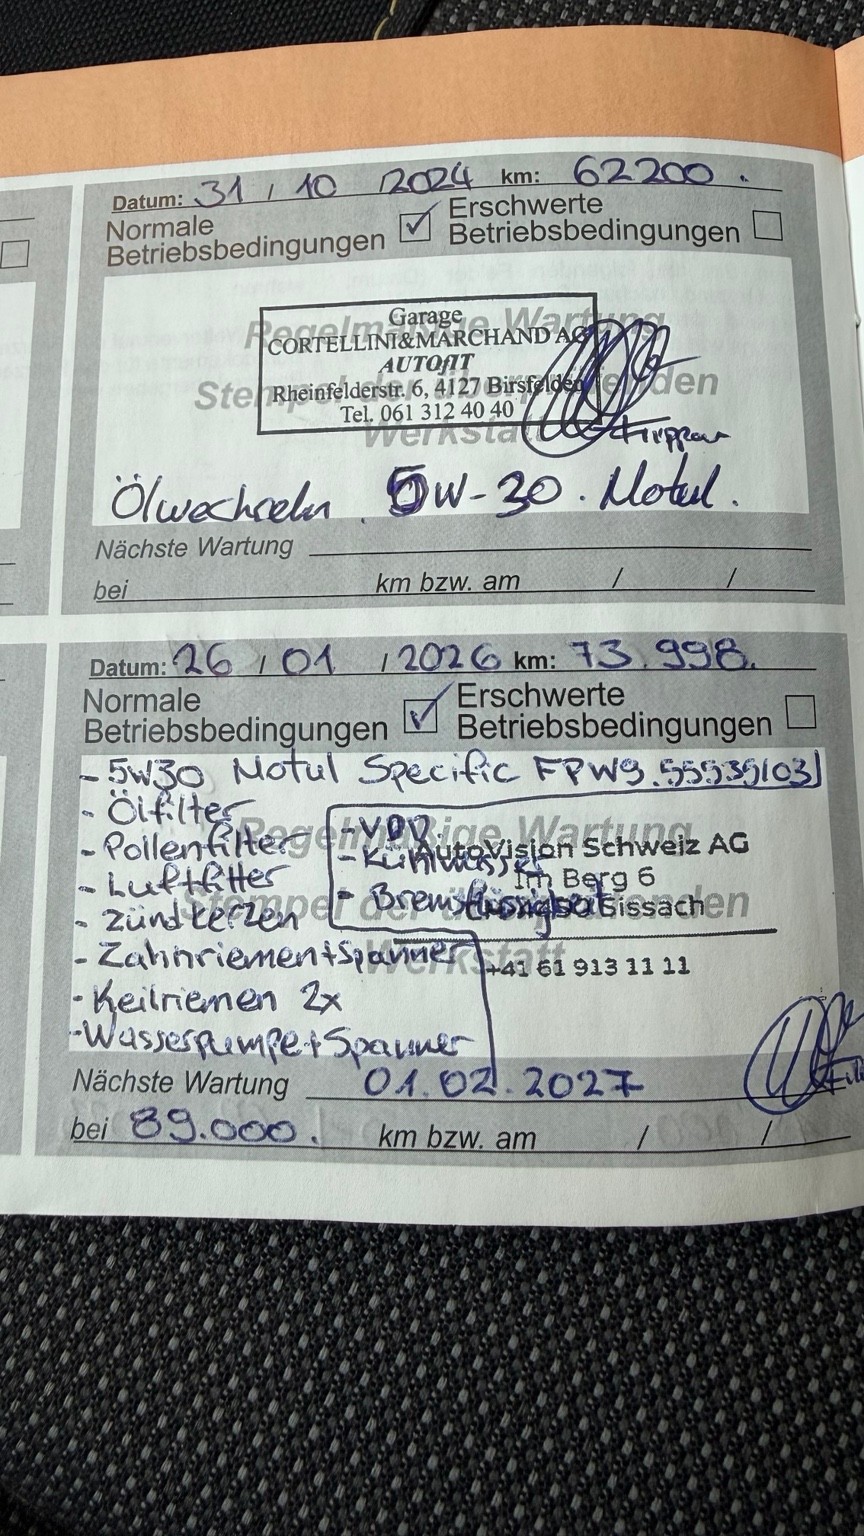 Datum: 31 / 10 / 2024 km: 62200.
Normale Betriebsbedingungen ☑ Erschwerte Betriebsbedingungen ☐
Regelmäßige Wartung
Stempel der überprüfenden
Werkstatt
Garage
CORTELLINI&MARCHAND AG
AUTOfIT
Rheinfelderstr. 6, 4127 Birsfelden
Tel. 061 312 40 40
Ölwechseln. 5W-30. Motul.
Nächste Wartung
bei km bzw. am / /
Datum: 26 / 01 / 2026 km: 73.998.
Normale Betriebsbedingungen ☑ Erschwerte Betriebsbedingungen ☐
- 5W30 Motul Specific
- Ölfilter
- Pollenfilter
- Luftfilter
- Zündkerzen
- Zahnriemen+Spanner
- Keilriemen 2x
- Wasserpumpe+Spanner
- Kühlwasser
- Bremsflüssigkeit
Regelmäßige Wartung
Stempel der überprüfenden
Werkstatt
AutoVision Schweiz AG
Im Berg 6
Sissach
+41 61 913 11 11
Nächste Wartung 01.02.2027
bei 89.000. km bzw. am / /